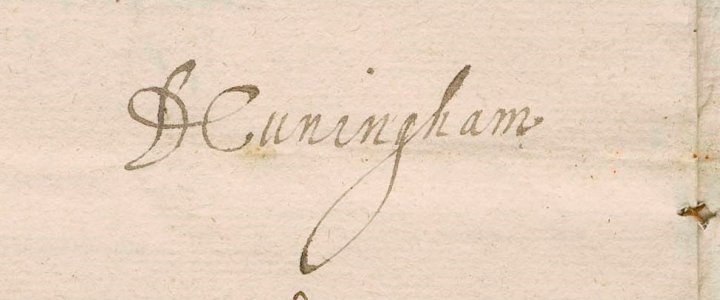 H Cuningham